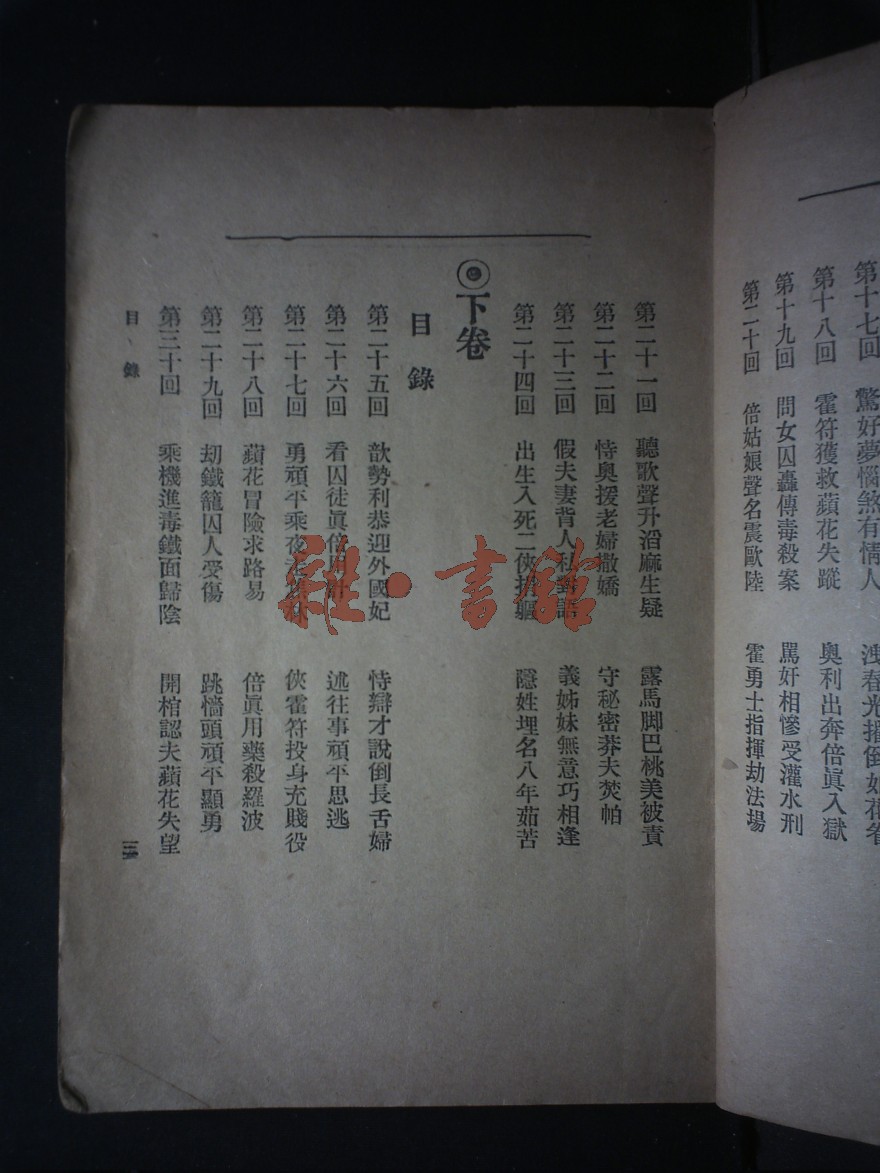 第十七回 驚好夢惱煞有情人 洩春光
第十八回 霍符獲救蘋花失蹤 奧利出奔倍眞入獄
第十九回 問女囚轟傳毒殺案 罵奸相慘受灌水刑
第二十回 倍姑娘聲名震歐陸 霍勇士指揮劫法場
第二十一回 聽歌聲升滔麻生疑 露馬脚巴桃美被責
第二十二回 恃奧援老婦撒嬌 守秘密莽夫焚帕
第二十三回 假夫妻背人私對語 義姊妹無意巧相逢
第二十四回 出生入死二俠 隱姓埋名八年茹苦
下卷
目錄
第二十五回 歆勢利恭迎外國妃 恃辯才說倒長舌婦
第二十六回 看囚徒眞倍 述往事頑平思逃
第二十七回 勇頑平乘夜 林 俠霍符投身充賤役
第二十八回 蘋花冒險求路易 倍眞用藥殺羅波
第二十九回 刧鐵籠囚人受傷 跳墻頭頑平顯勇
第三十回 乘機進毒鐵面歸陰 開棺認夫蘋花失望
目錄
三
雜·書館